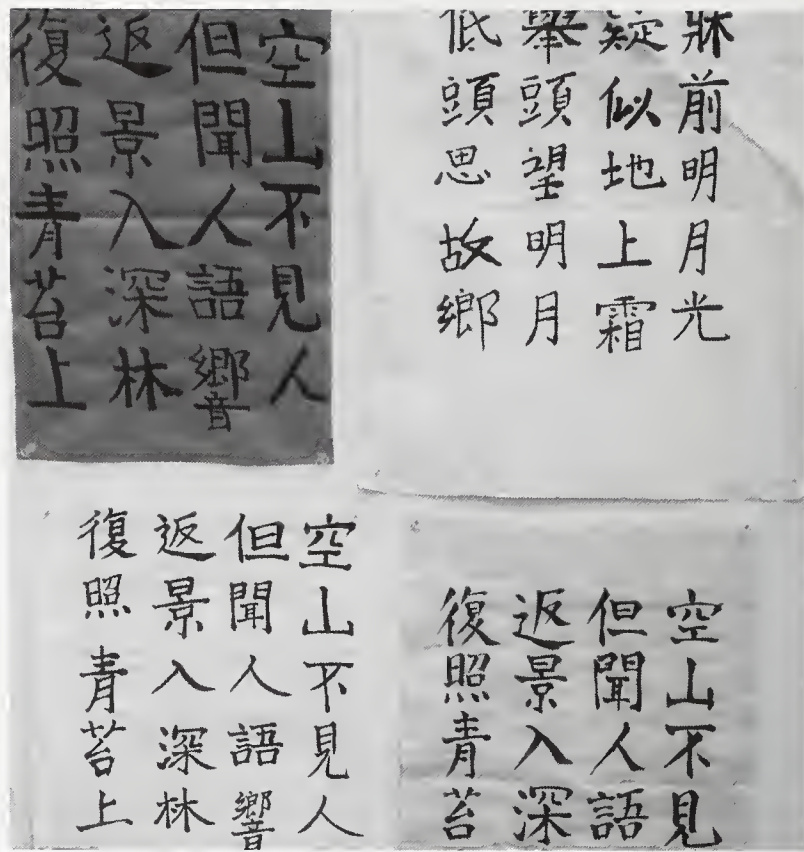 空山不見人
但聞人語響
返景入深林
復照青苔上
牀前明月光
疑似地上霜
舉頭望明月
低頭思故鄉
空山不見人
但聞人語響
返景入深林
復照青苔上
空山不見
但聞人語
返景入深
復照青苔